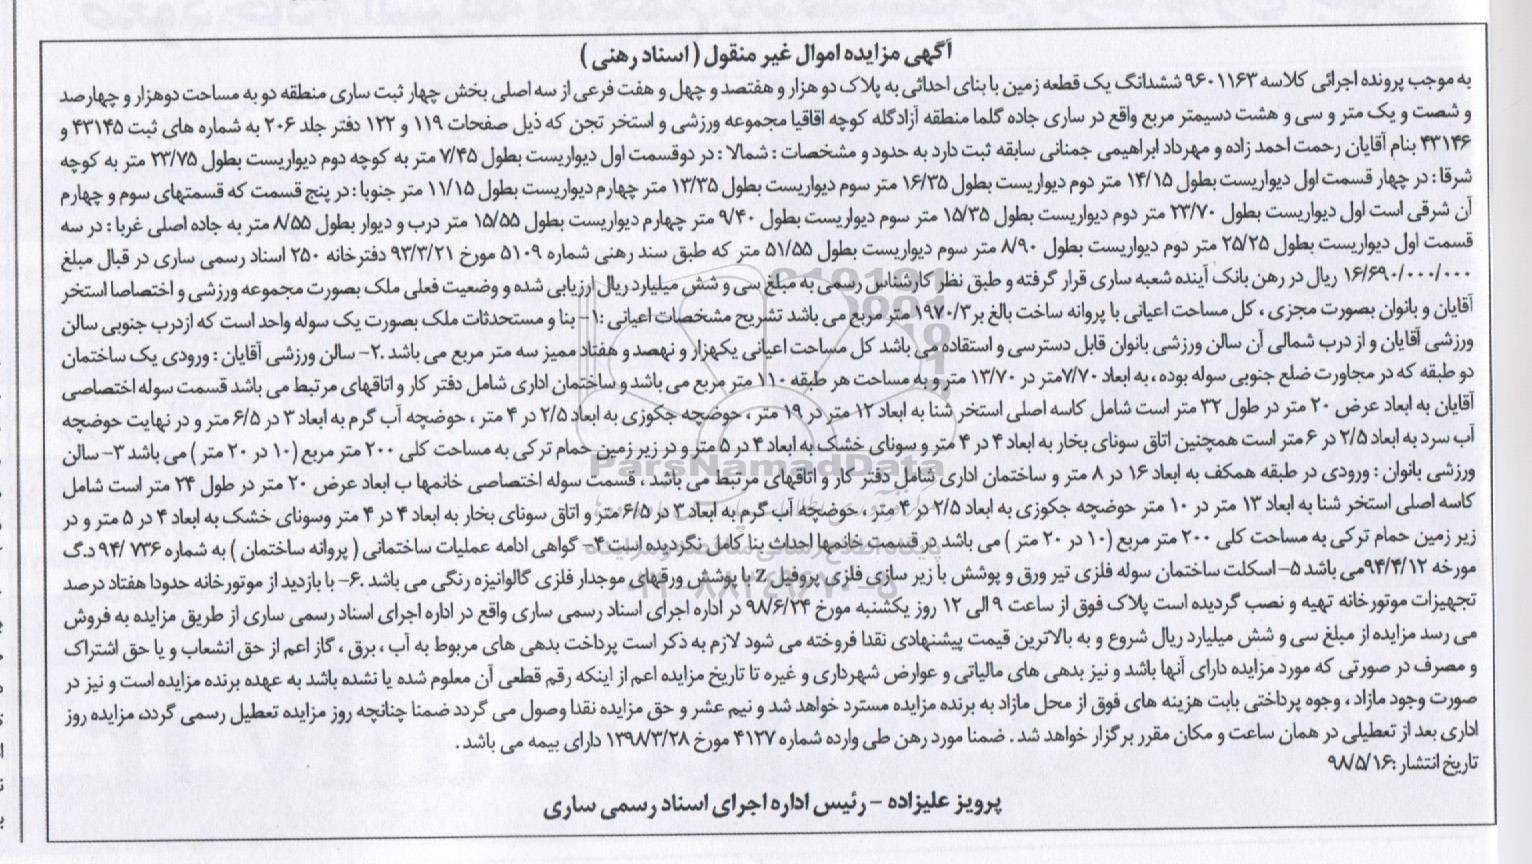 آگهی مزایده اموال غیر منقول ( اسناد رهنی )
به موجب پرونده اجرائی کلاسه ۹۶۰۱۱۶۳ ششدانگ یک قطعه زمین با بنای احداثی به پلاک دو هزار و هفتصد و چهل و هفت فرعی از سه اصلی بخش چهار ثبت ساری منطقه دو به مساحت دوهزار و چهارصد
و شصت و یک متر و سی و هشت دسیمتر مربع واقع در ساری جاده گلما منطقه آزادگله کوچه اقاقیا مجموعه ورزشی و استخر تجن که ذیل صفحات ۱۱۹ و ۱۲۲ دفتر جلد ۲۰۶ به شماره های ثبت ۴۳۱۴۵ و
۴۳۱۴۶ بنام آقایان رحمت احمد زاده و مهرداد ابراهیمی جمنانی سابقه ثبت دارد به حدود و مشخصات : شمالا : در دوقسمت اول دیواریست بطول ۷/۴۵ متر به کوچه دوم دیواریست بطول ۲۳/۷۵ متر به کوچه
شرقا : در چهار قسمت اول دیواریست بطول ۱۴/۱۵ متر دوم دیواریست بطول ۱۶/۳۵ متر سوم دیواریست بطول ۱۳/۳۵ متر چهارم دیواریست بطول ۱۱/۱۵ متر جنوبا : در پنج قسمت که قسمتهای سوم و چهارم
آن شرقی است اول دیواریست بطول ۲۳/۷۰ متر دوم دیواریست بطول ۱۵/۳۵ متر سوم دیواریست بطول ۹/۴۰ متر چهارم دیواریست بطول ۱۵/۵۵ متر درب و دیوار بطول ۸/۵۵ متر به جاده اصلی غربا : در سه
قسمت اول دیواریست بطول ۲۵/۲۵ متر دوم دیواریست بطول ۸/۹۰ متر سوم دیواریست بطول ۵۱/۵۵ متر که طبق سند رهنی شماره ۵۱۰۹ مورخ ۹۳/۳/۲۱ دفترخانه ۲۵۰ اسناد رسمی ساری در قبال مبلغ
۱۶/۶۹۰/۰۰۰/۰۰۰ ریال در رهن بانک آینده شعبه ساری قرار گرفته و طبق نظر کارشناس رسمی به مبلغ سی و شش میلیارد ریال ارزیابی شده و وضعیت فعلی ملک بصورت مجموعه ورزشی و اختصاصا استخر
آقایان و بانوان بصورت مجزی ، کل مساحت اعیانی با پروانه ساخت بالغ بر ۱۹۷۰/۳ متر مربع می باشد تشریح مشخصات اعیانی :۱- بنا و مستحدثات ملک بصورت یک سوله واحد است که ازدرب جنوبی سالن
ورزشی آقایان و از درب شمالی آن سالن ورزشی بانوان قابل دسترسی و استفاده می باشد کل مساحت اعیانی یکهزار و نهصد و هفتاد ممیز سه متر مربع می باشد .۲- سالن ورزشی آقایان : ورودی یک ساختمان
دو طبقه که در مجاورت ضلع جنوبی سوله بوده ، به ابعاد ۷/۷۰متر در ۱۳/۷۰ متر و به مساحت هر طبقه ۱۱۰ متر مربع می باشد و ساختمان اداری شامل دفتر کار و اتاقهای مرتبط می باشد قسمت سوله اختصاصی
آقایان به ابعاد عرض ۲۰ متر در طول ۳۲ متر است شامل کاسه اصلی استخر شنا به ابعاد ۱۲ متر در ۱۹ متر ، حوضچه جکوزی به ابعاد ۲/۵ در ۴ متر ، حوضچه آب گرم به ابعاد ۳ در ۶/۵ متر و در نهایت حوضچه
آب سرد به ابعاد ۲/۵ در ۶ متر است همچنین اتاق سونای بخار به ابعاد ۴ در ۴ متر و سونای خشک به ابعاد ۴ در ۵ متر و در زیر زمین حمام ترکی به مساحت کلی ۲۰۰ متر مربع (۱۰ در ۲۰ متر ) می باشد ۳- سالن
ورزشی بانوان : ورودی در طبقه همکف به ابعاد ۱۶ در ۸ متر و ساختمان اداری شامل دفتر کار و اتاقهای مرتبط می باشد ، قسمت سوله اختصاصی خانمها ب ابعاد عرض ۲۰ متر در طول ۲۴ متر است شامل
کاسه اصلی استخر شنا به ابعاد ۱۳ متر در ۱۰ متر حوضچه جکوزی به ابعاد ۲/۵ در ۴ متر ، حوضچه آب گرم به ابعاد ۳ در ۶/۵ متر و اتاق سونای بخار به ابعاد ۴ در ۴ متر وسونای خشک به ابعاد ۴ در ۵ متر و در
زیر زمین حمام ترکی به مساحت کلی ۲۰۰ متر مربع (۱۰ در ۲۰ متر ) می باشد در قسمت خانمها احداث بنا کامل نگردیده است ۴- گواهی ادامه عملیات ساختمانی ( پروانه ساختمان ) به شماره ۷۳۶ /۹۴ د.گ
مورخه ۹۴/۴/۱۲می باشد ۵- اسکلت ساختمان سوله فلزی تیر ورق و پوشش با زیر سازی فلزی پروفیل Z با پوشش ورقهای موجدار فلزی گالوانیزه رنگی می باشد .۶- با بازدید از موتورخانه حدودا هفتاد درصد
تجهیزات موتورخانه تهیه و نصب گردیده است پلاک فوق از ساعت ۹ الی ۱۲ روز یکشنبه مورخ ۹۸/۶/۲۴ در اداره اجرای اسناد رسمی ساری واقع در اداره اجرای اسناد رسمی ساری از طریق مزایده به فروش
می رسد مزایده از مبلغ سی و شش میلیارد ریال شروع و به بالاترین قیمت پیشنهادی نقدا فروخته می شود لازم به ذکر است پرداخت بدهی های مربوط به آب ، برق ، گاز اعم از حق انشعاب و یا حق اشتراک
و مصرف در صورتی که مورد مزایده دارای آنها باشد و نیز بدهی های مالیاتی و عوارض شهرداری و غیره تا تاریخ مزایده اعم از اینکه رقم قطعی آن معلوم شده یا نشده باشد به عهده برنده مزایده است و نیز در
صورت وجود مازاد ، وجوه پرداختی بابت هزینه های فوق از محل مازاد به برنده مزایده مسترد خواهد شد و نیم عشر و حق مزایده نقدا وصول می گردد ضمنا چنانچه روز مزایده تعطیل رسمی گردد، مزایده روز
اداری بعد از تعطیلی در همان ساعت و مکان مقرر برگزار خواهد شد . ضمنا مورد رهن طی وارده شماره ۴۱۲۷ مورخ ۱۳۹۸/۳/۲۸ دارای بیمه می باشد .
تاریخ انتشار :۹۸/۵/۱۶
پرویز علیزاده - رئیس اداره اجرای اسناد رسمی ساری
ParsNamadData